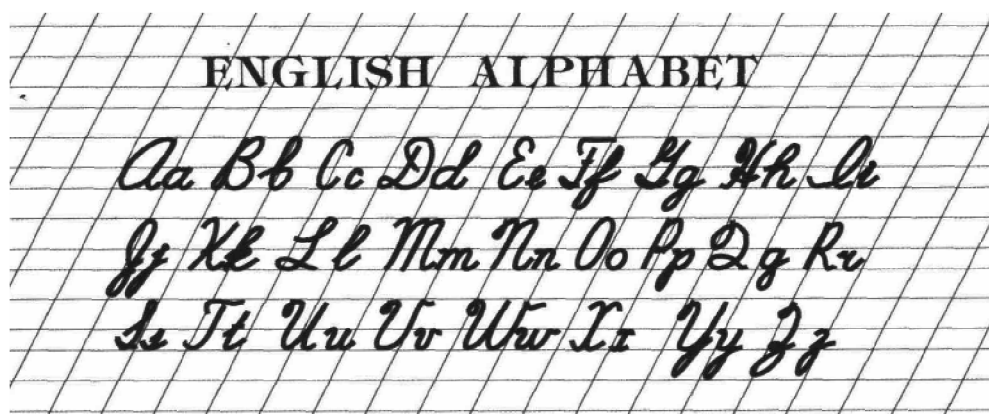 ENGLISH ALPHABET
Aa Bb Cc Dd Ee Ff Gg Hh Ii
Jj Kk Ll Mm Nn Oo Pp Qq Rr
Ss Tt Uu Vv Ww Xx Yy Zz